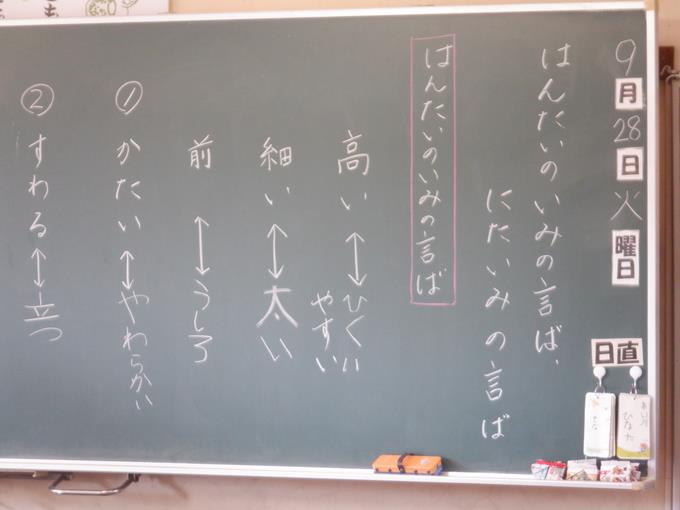 9月28日火曜日
日直
はんたいのいみの言ば、
にたいみの言ば
はんたいのいみの言ば
高い↔ひくい
やすい
細い↔太い
前↔うしろ
①かたい↔やわらかい
②すわる↔立つ